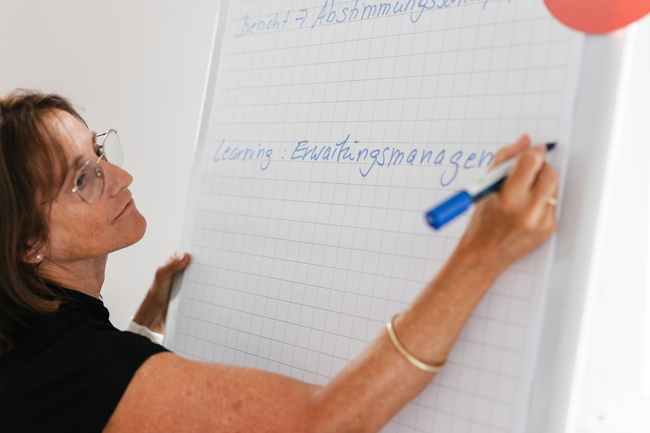 Bericht → Abstimmungs
Learning : Erwartungsmanagem